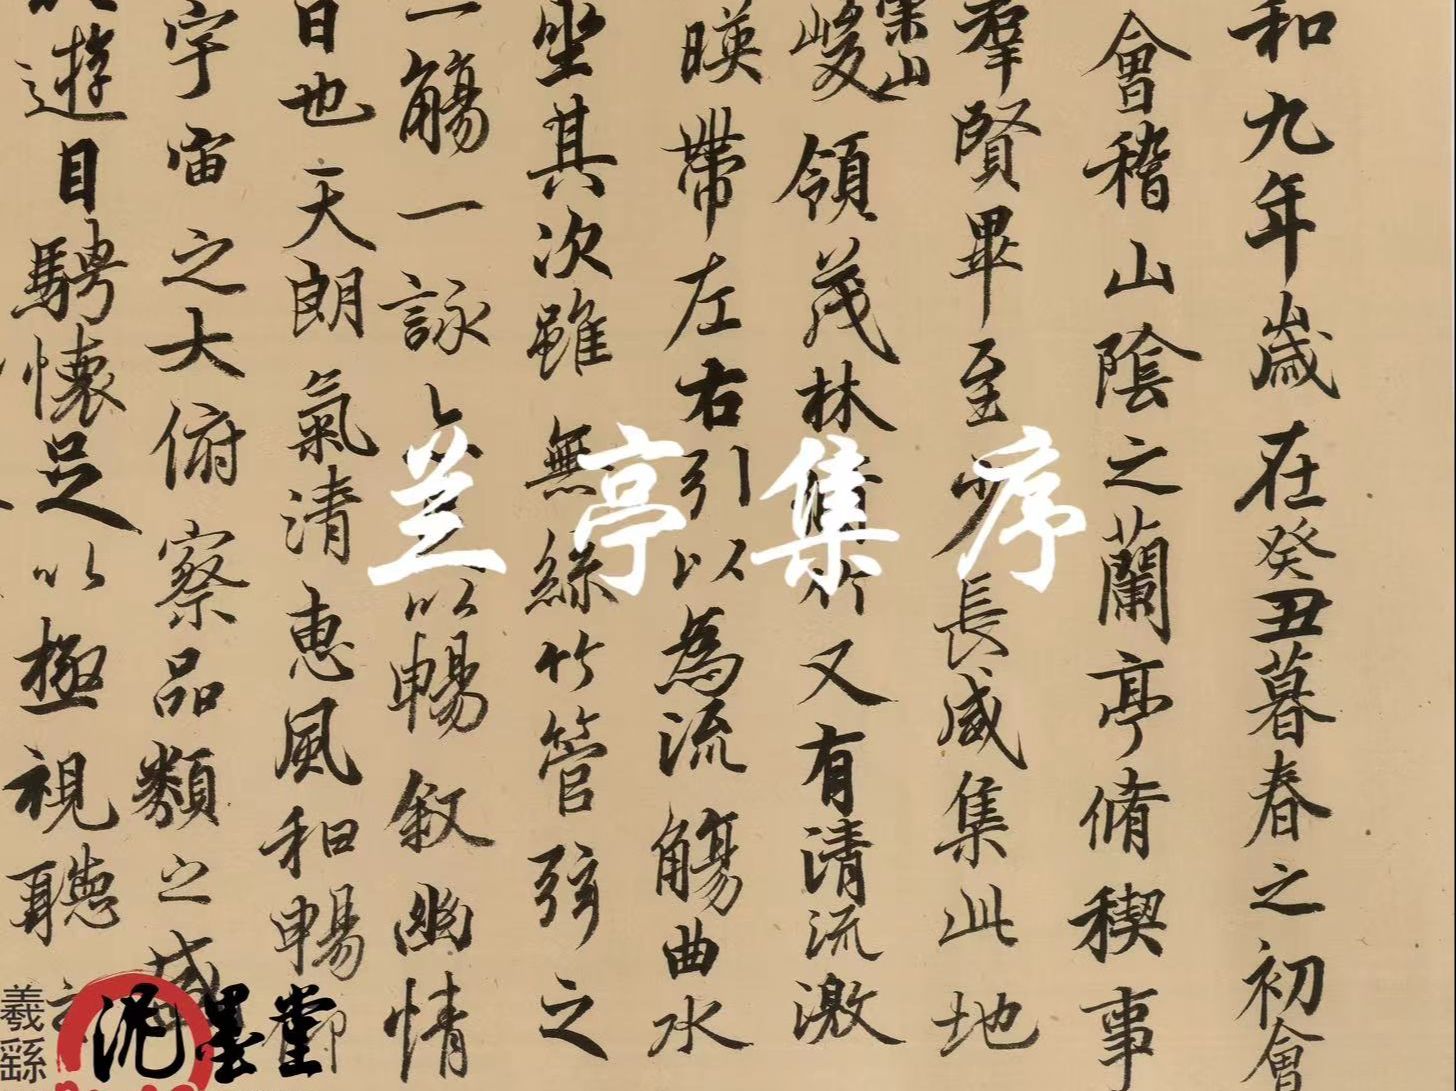 和九年歲在癸丑暮春之初會
會稽山陰之蘭亭脩稧事
羣賢畢至少長咸集此地
崇山
峻領茂林脩竹又有清流激
暎帶左右引以為流觴曲水
坐其次雖無絲竹管弦之
一觴一詠亦足以暢敘幽情
日也天朗氣清惠風和暢
宇宙之大俯察品類之盛
遊目騁懷足以極視聽
兰亭集序
泥墨堂
羲